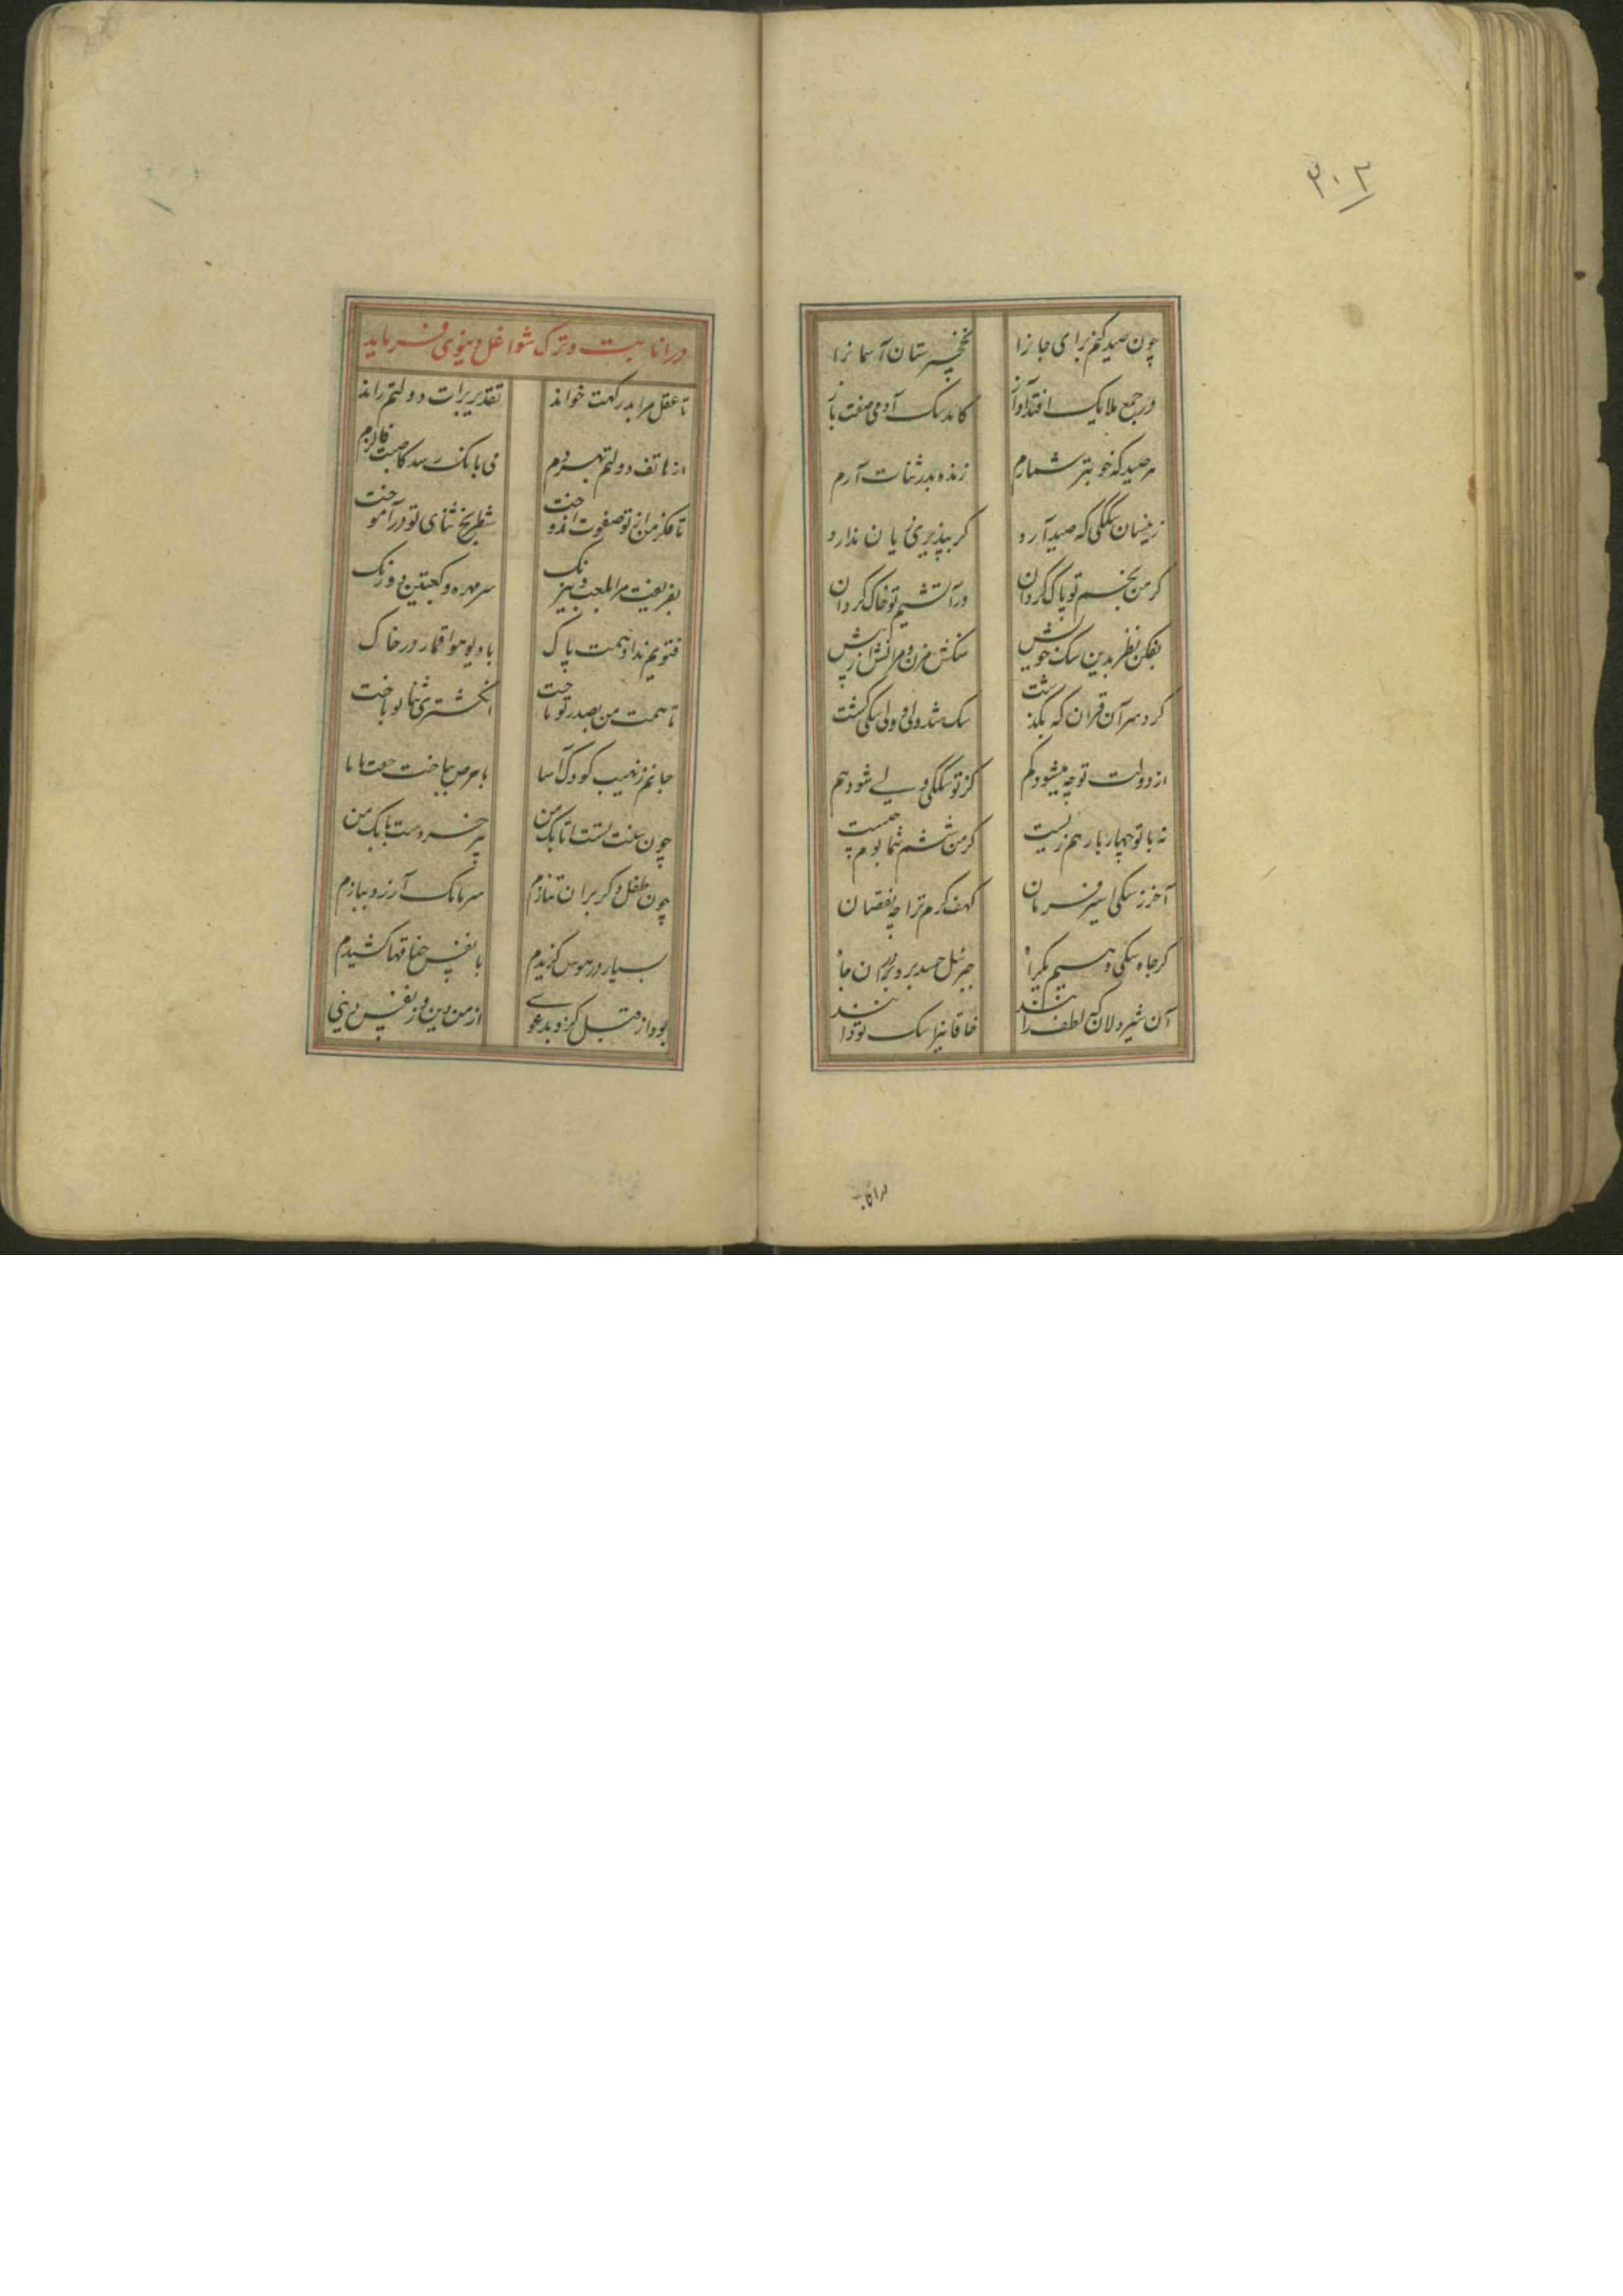 ۳۰۲
چون صید کنم برای جانرا نخچیرستان آسمانرا
در جمع ملایک افتد آواز کامد سک آدمی صفت باز
هر صید که خوبتر شمارم زنده بدر ثنات آرم
زینسان سککی که صید آرد کر بپذیری زیان ندارد
کر من نجسم تو پاک کردان ور آتشیم تو خاک کردان
بفکن نظر بدین سک خویش سنکش مزن و مرانش از پیش
کرد سر آن قران که بکذشت سک شد ولی و ولی سکی کشت
از دولت تو چه میشود کم کز تو سککی ولی شود هم
نه با تو چهار یار هم زیست کر من ششم شما بوم چیست
آخر ز سکی اسیر فرمان کهف کرم ترا چه نقصان
کر جاه سکی دهیم یکراه جبرئیل حسد برد بر آن جاه
آن شیردلان که لطف رانند خاقانیرا سک تو دانند
در انابت
در انابت و ترک شواغل دنیوی فرماید
تا عقل مرا بدرکهت خواند تقدیر برات دولتم راند
از هاتف دولتم بهر دم می بانک رسد کاصبت فالزم
تا فکر من از تو صفوت اندوخت شطرنج ثنای تو درآموخت
بفریفت مرا بلعب و نیرنک سر مهره و کعبتین دو رنک
فتویم نداد همت پاک با دیو هوا قمار در خاک
تا همت من بصدر تو تاخت انکشتری ثنا تو باخت
جانم ز نهیب کودک آسا با حرص بباخت جفت
چون طفل دکر بران نتازم سرمامک آرزو ببازم
بسیار در هوس کزیدم با نفس جناقها کشیدم
بود از قبل کرو بدعوی از من دین و ز نفس دینی